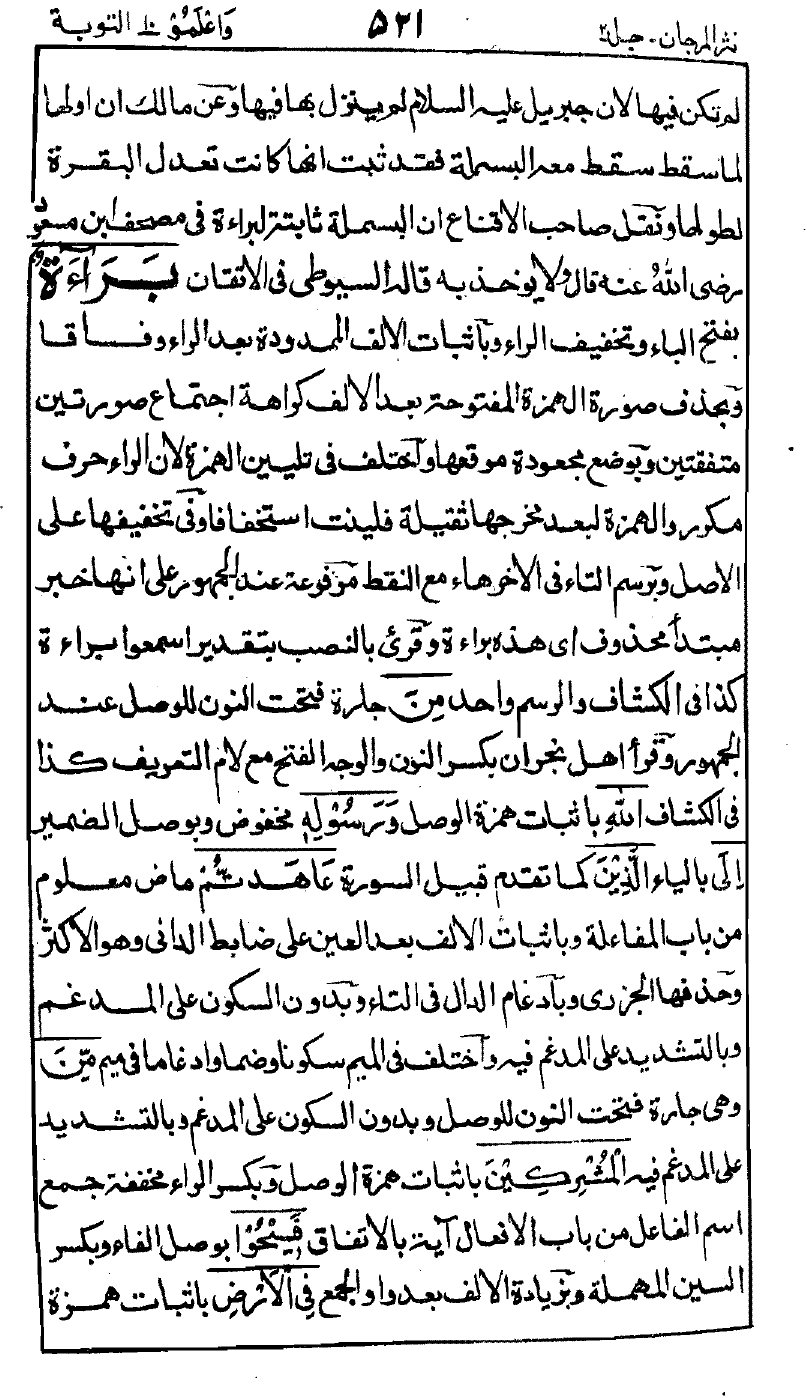 نثر المرجان - جلد ٢ ٥٢١ وَاعْلَمُوْا ١٠ التوبة
لم تكن فيها لان جبريل عليه السلام لم ينزل بها فيها وعن مالك ان اولها
لما سقط سقط معه البسملة فقد ثبت انها كانت تعدل البقرة
لطولها ونقل صاحب الاقناع ان البسملة ثابتة لبراءة فى مصحف ابن مسعود
رضى اللهُ عنه قال ولا يوخذ به قاله السيوطى فى الاتقان بَرَآءَةٌ
بفتح الباء وتخفيف الراء وباثبات الالف الممدودة بعد الراء وفاقا
وبحذف صورة الهمزة المفتوحة بعد الالف كراهة اجتماع صورتين
متفقتين وبوضع مجعودة موقعها واختلف فى تليين الهمزة لان الراء حرف
مكرر والهمزة لبعد مخرجها ثقيلة فلينت استخفافا وفى تخفيفها على
الاصل وبرسم التاء فى الاخر هاء مع النقط مرفوعة عند الجمهور على انها خبر
مبتدأ محذوف اى هذه براءة وقرئ بالنصب بتقدير اسمعوا براءة
كذا فى الكشاف والرسم واحد مِنَ جارة فتحت النون للوصل عند
الجمهور وقرأ اهل نجران بكسر النون والوجه الفتح مع لام التعريف كذا
فى الكشاف اللهِ باثبات همزة الوصل وَرَسُوْلِهٖ مخفوض وبوصل الضمير
اِلَى بالياء الَّذِيْنَ كما تقدم قبيل السورة عَاهَدْتُّمْ ماض معلوم
من باب المفاعلة وباثبات الالف بعد العين على ضابط الدانى وهو الاكثر
وحذفها الجزرى وبادغام الدال فى التاء وبدون السكون على المدغم
وبالتشديد على المدغم فيه واختلف فى الميم سكونا وضما وادغاما فى ميم مِّنَ
وهى جارة فتحت النون للوصل وبدون السكون على المدغم وبالتشديد
على المدغم فيه الْمُشْرِكِيْنَ باثبات همزة الوصل وبكسر الراء مخففة جمع
اسم الفاعل من باب الافعال آية بالاتفاق فَسِيْحُوْا بوصل الفاء وبكسر
السين المهملة وبزيادة الالف بعد واو الجمع فِى الْاَرْضِ باثبات همزة